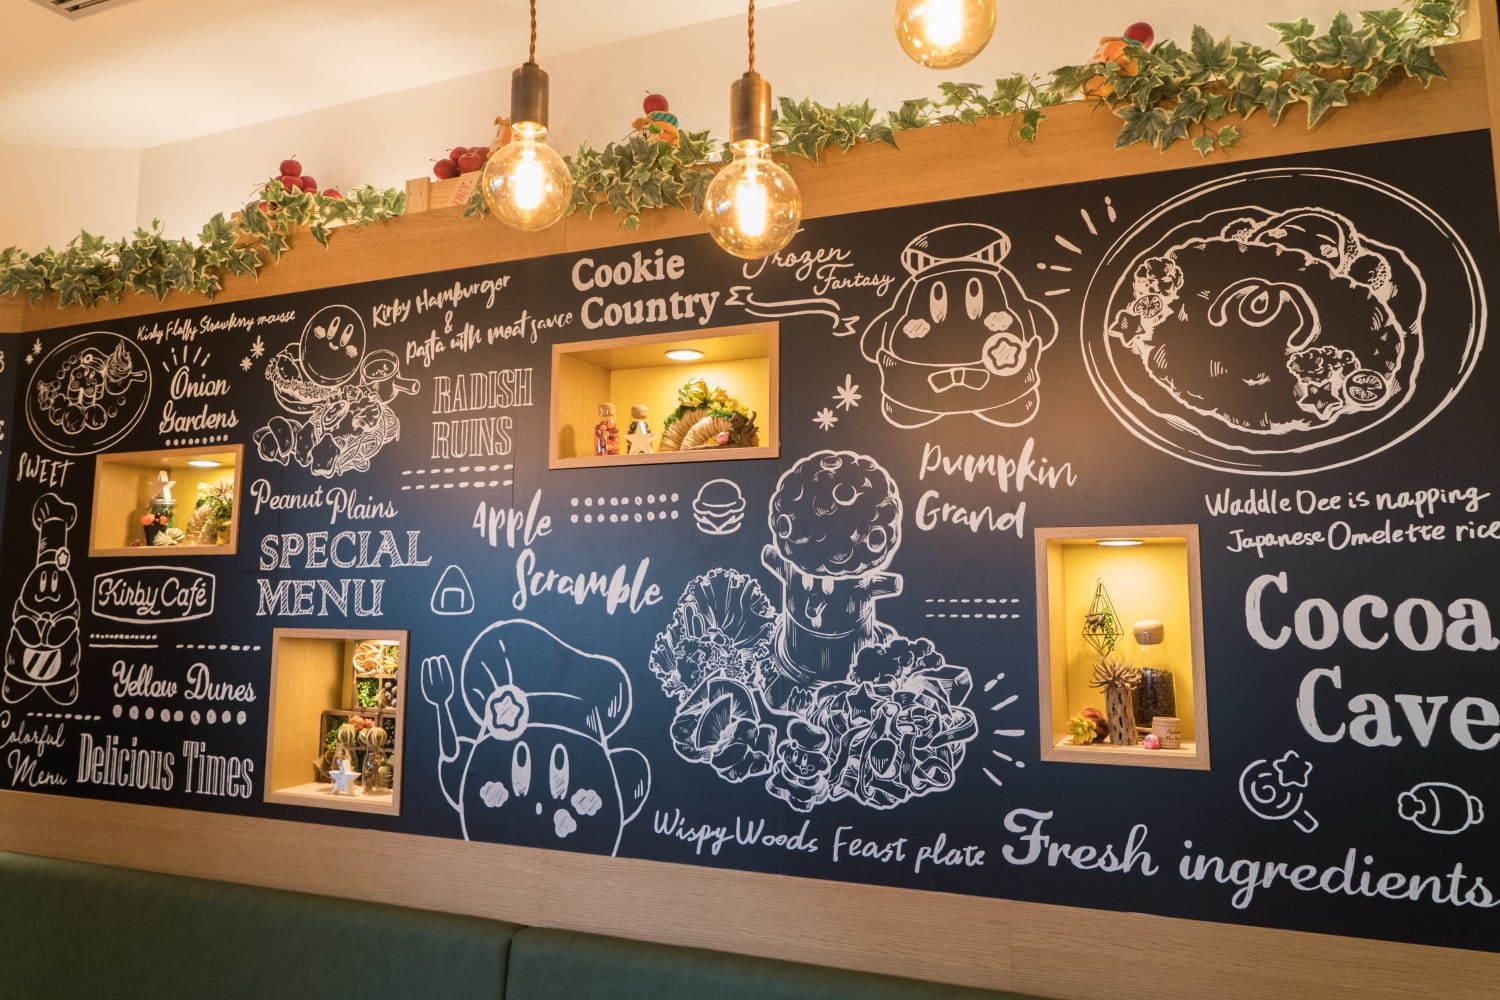 Kirby Fluffy Strawberry mousse
Onion
Gardens
SWEET
Kirby Café
Yellow Dunes
Colorful
Menu
Delicious Times
Kirby Hamburger
&
pasta with meat sauce
RADISH
RUINS
Peanut Plains
SPECIAL
MENU
Cookie
Country
Frozen
Fantasy
Apple
Scramble
Pumpkin
Grand
Wispy Woods Feast plate
Waddle Dee is napping
Japanese Omelette rice
Cocoa
Cave
Fresh ingredients